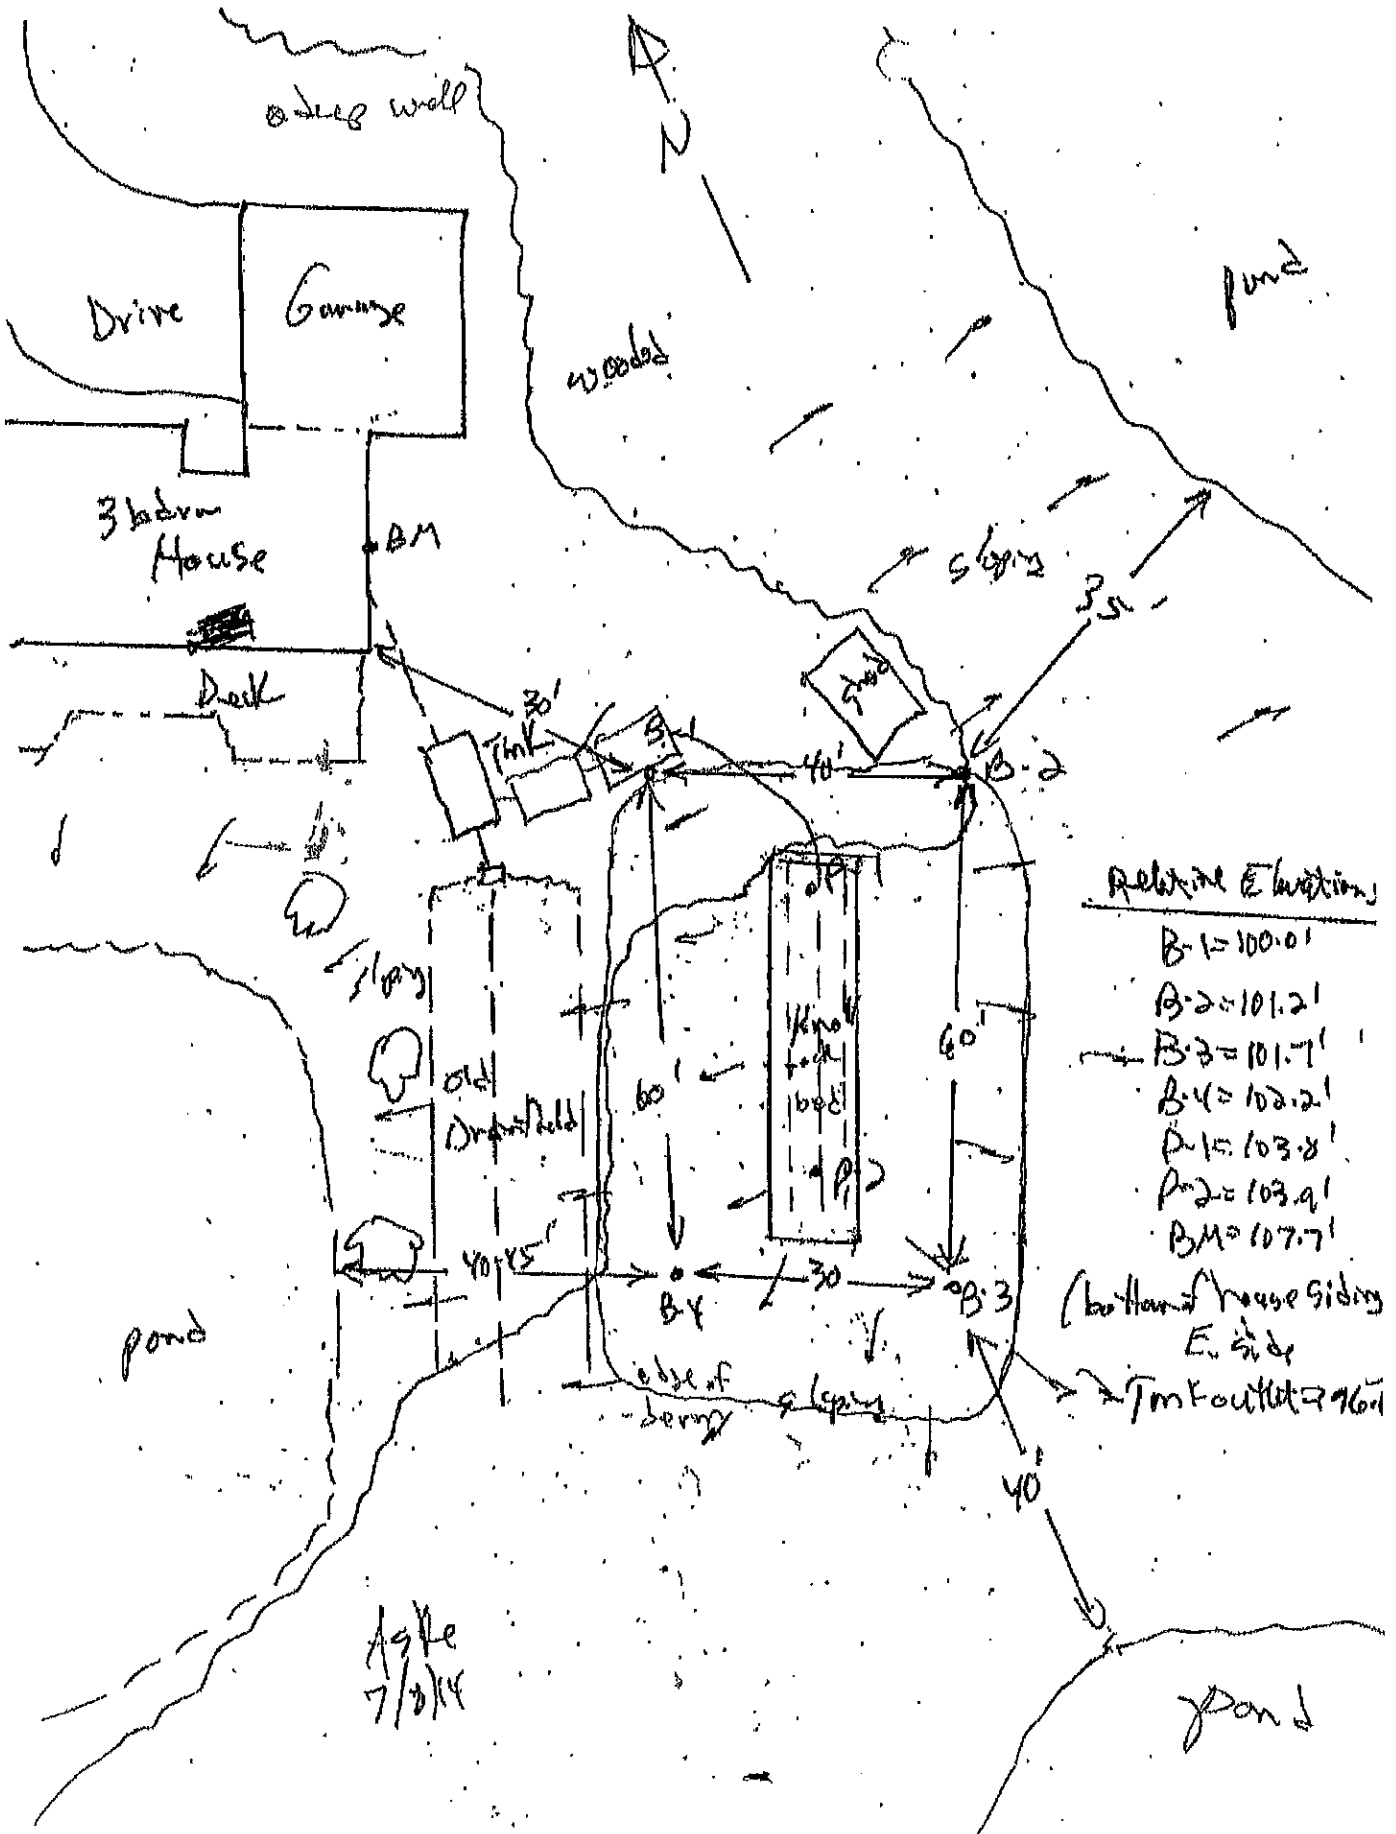 deep well
N
Drive
Garage
pond
wooded
3 bdrm
House
BM
sloping
35'
Deck
30'
Tank
B-1
shed
40'
B-2
Relative Elevations
B-1=100.0'
B-2=101.2'
B-3=101.7'
B-4=102.2'
P-1=103.8'
P-2=103.9'
BM=107.7'
(bottom of house siding
E. side
Tank outlet=96.
sloping
Old
Drainfield
60'
rock
bed
60'
P-2
40-45'
B-4
30
B-3
pond
edge of
berm
sloping
40'
7/8/14
pond